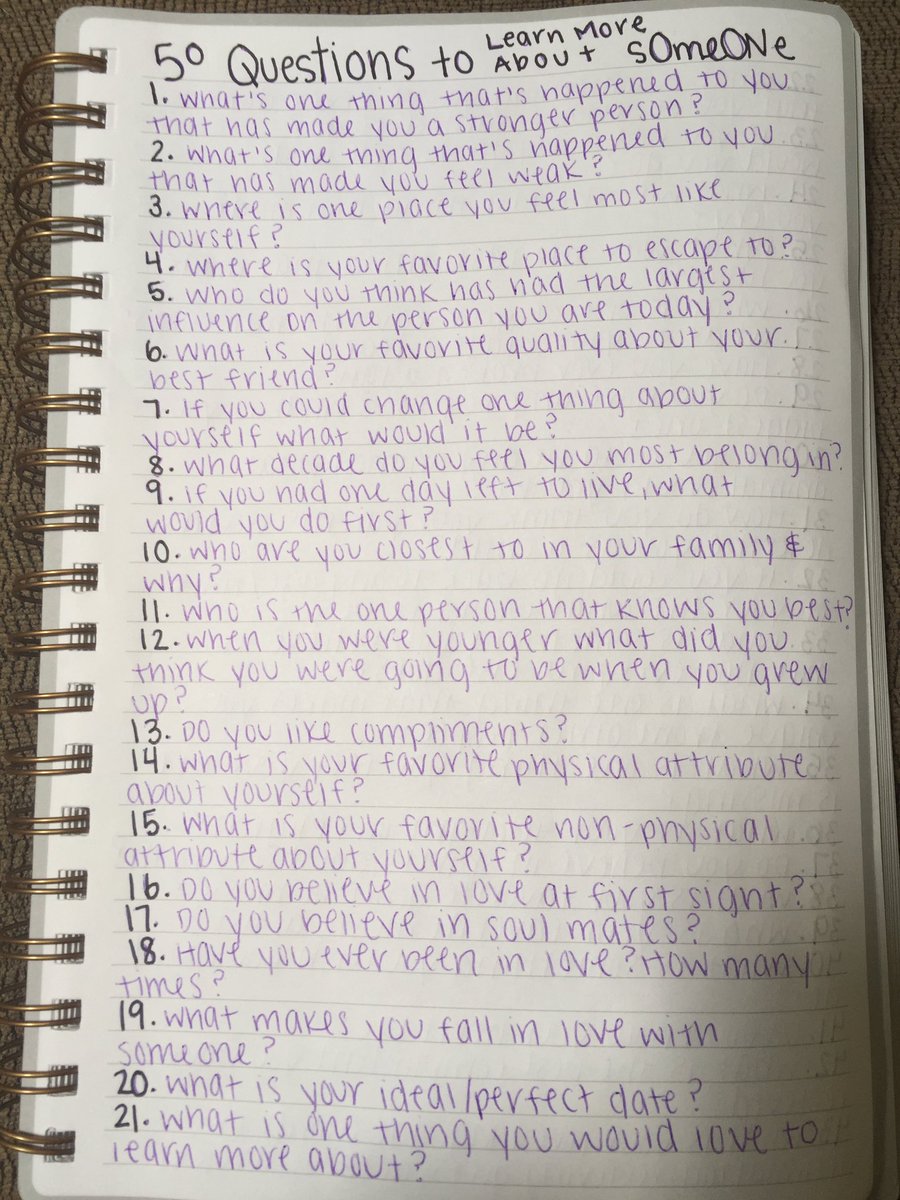 50 Questions to Learn More About SOmeONe
1. What's one thing that's happened to you
that has made you a stronger person?
2. What's one thing that's happened to you
that has made you feel weak?
3. Where is one place you feel most like
yourself?
4. Where is your favorite place to escape to?
5. Who do you think has had the largest
influence on the person you are today?
6. What is your favorite quality about your
best friend?
7. If you could change one thing about
yourself what would it be?
8. What decade do you feel you most belong in?
9. If you had one day left to live, what
would you do first?
10. Who are you closest to in your family &
why?
11. Who is the one person that knows you best?
12. When you were younger what did you
think you were going to be when you grew
up?
13. Do you like compliments?
14. What is your favorite physical attribute
about yourself?
15. What is your favorite non-physical
attribute about yourself?
16. Do you believe in love at first sight?
17. Do you believe in soul mates?
18. Have you ever been in love? How many
times?
19. What makes you fall in love with
someone?
20. What is your ideal/perfect date?
21. What is one thing you would love to
learn more about?